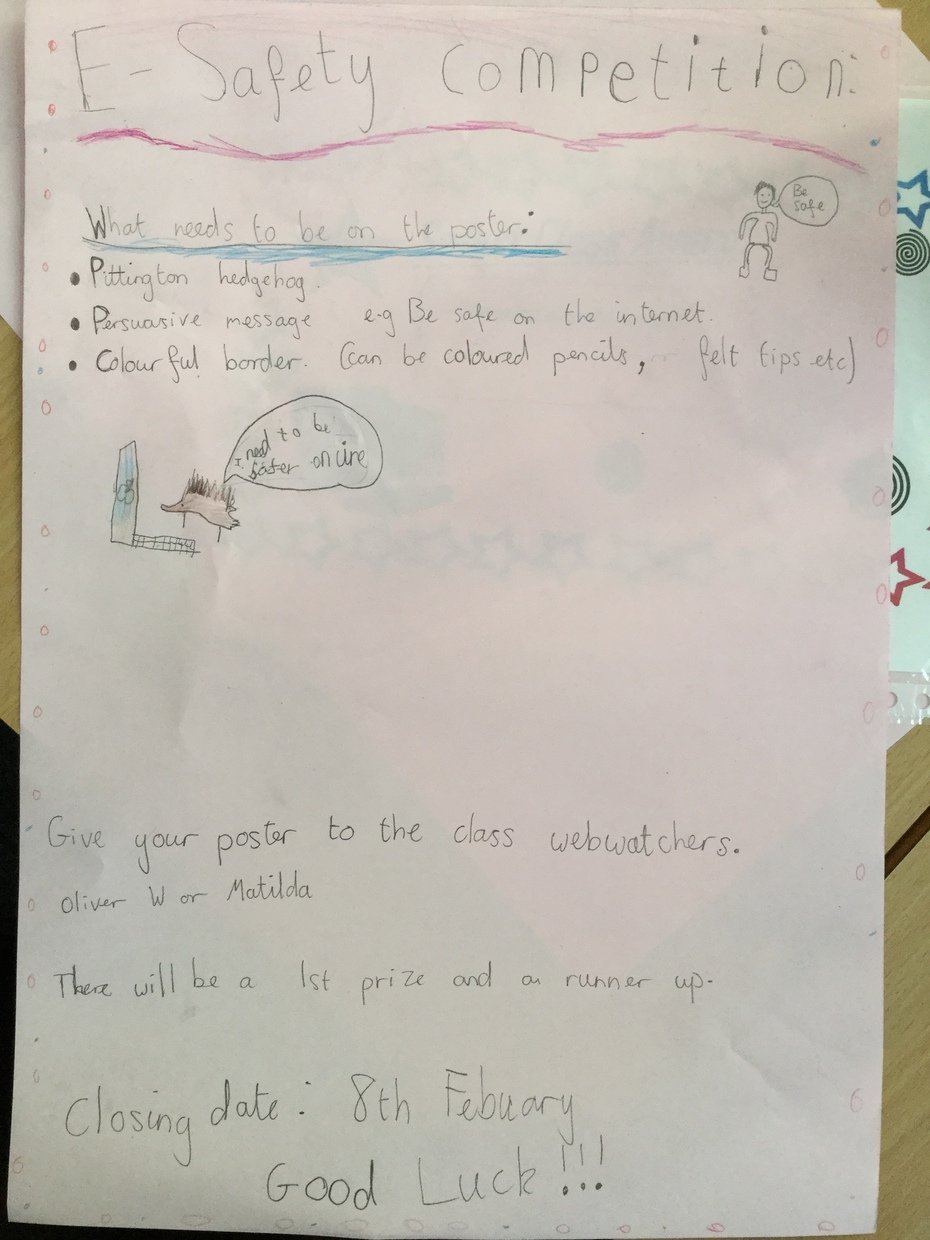 E-Safety Competition:
Be
safe
What needs to be on the poster:
• Pittington hedgehog.
• Persuasive message e-g Be safe on the internet.
• Colourful border. (Can be coloured pencils, felt tips etc)
I need to be
safer online
Give your poster to the class webwatchers.
Oliver W or Matilda
There will be a 1st prize and a runner up.
Closing date: 8th Febuary
Good Luck!!!